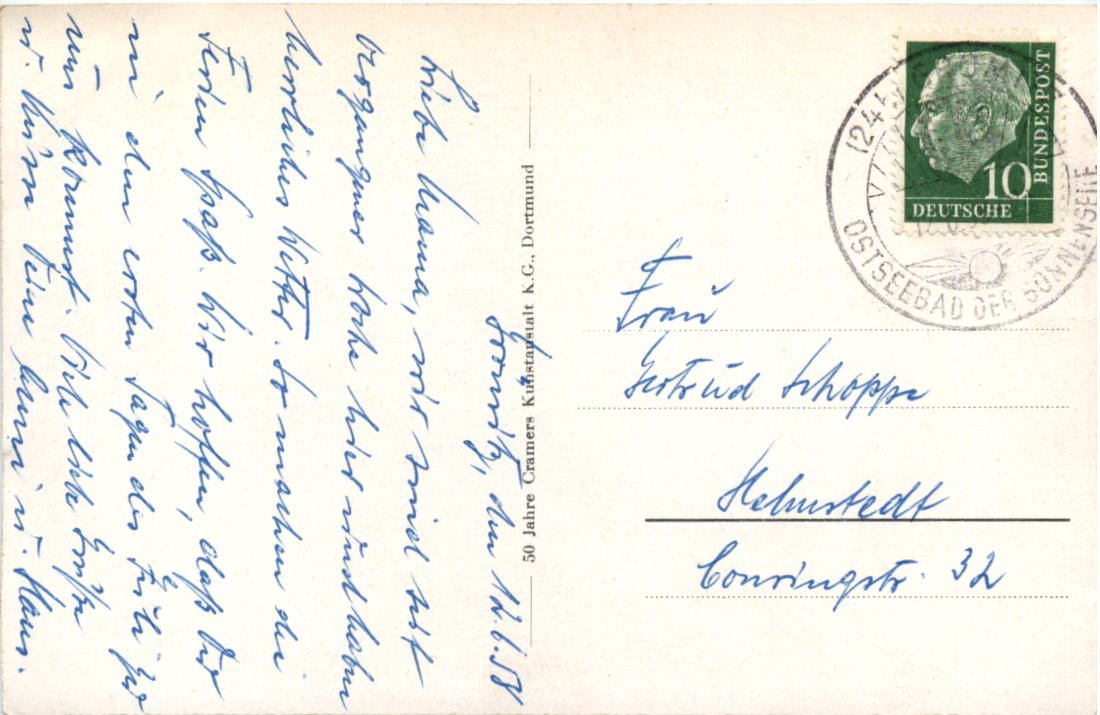 Grömitz, den 12.6.58
Liebe Mama, wir sind seit
vergangener Woche hier und haben
herrliches Wetter. So machen die
Ferien Spaß. Wir hoffen, daß Du
in den ersten Tagen des Juli zu
uns kommst. Viele liebe Grüße
u. Küsse Deine u. Klaus.
50 Jahre Cramers Kunstanstalt K.G., Dortmund
DEUTSCHE
BUNDESPOST
10
(24
OSTSEEBAD DER SONNENSEITE
Frau
Gertrud Schoppe
Helmstedt
Conringstr. 32